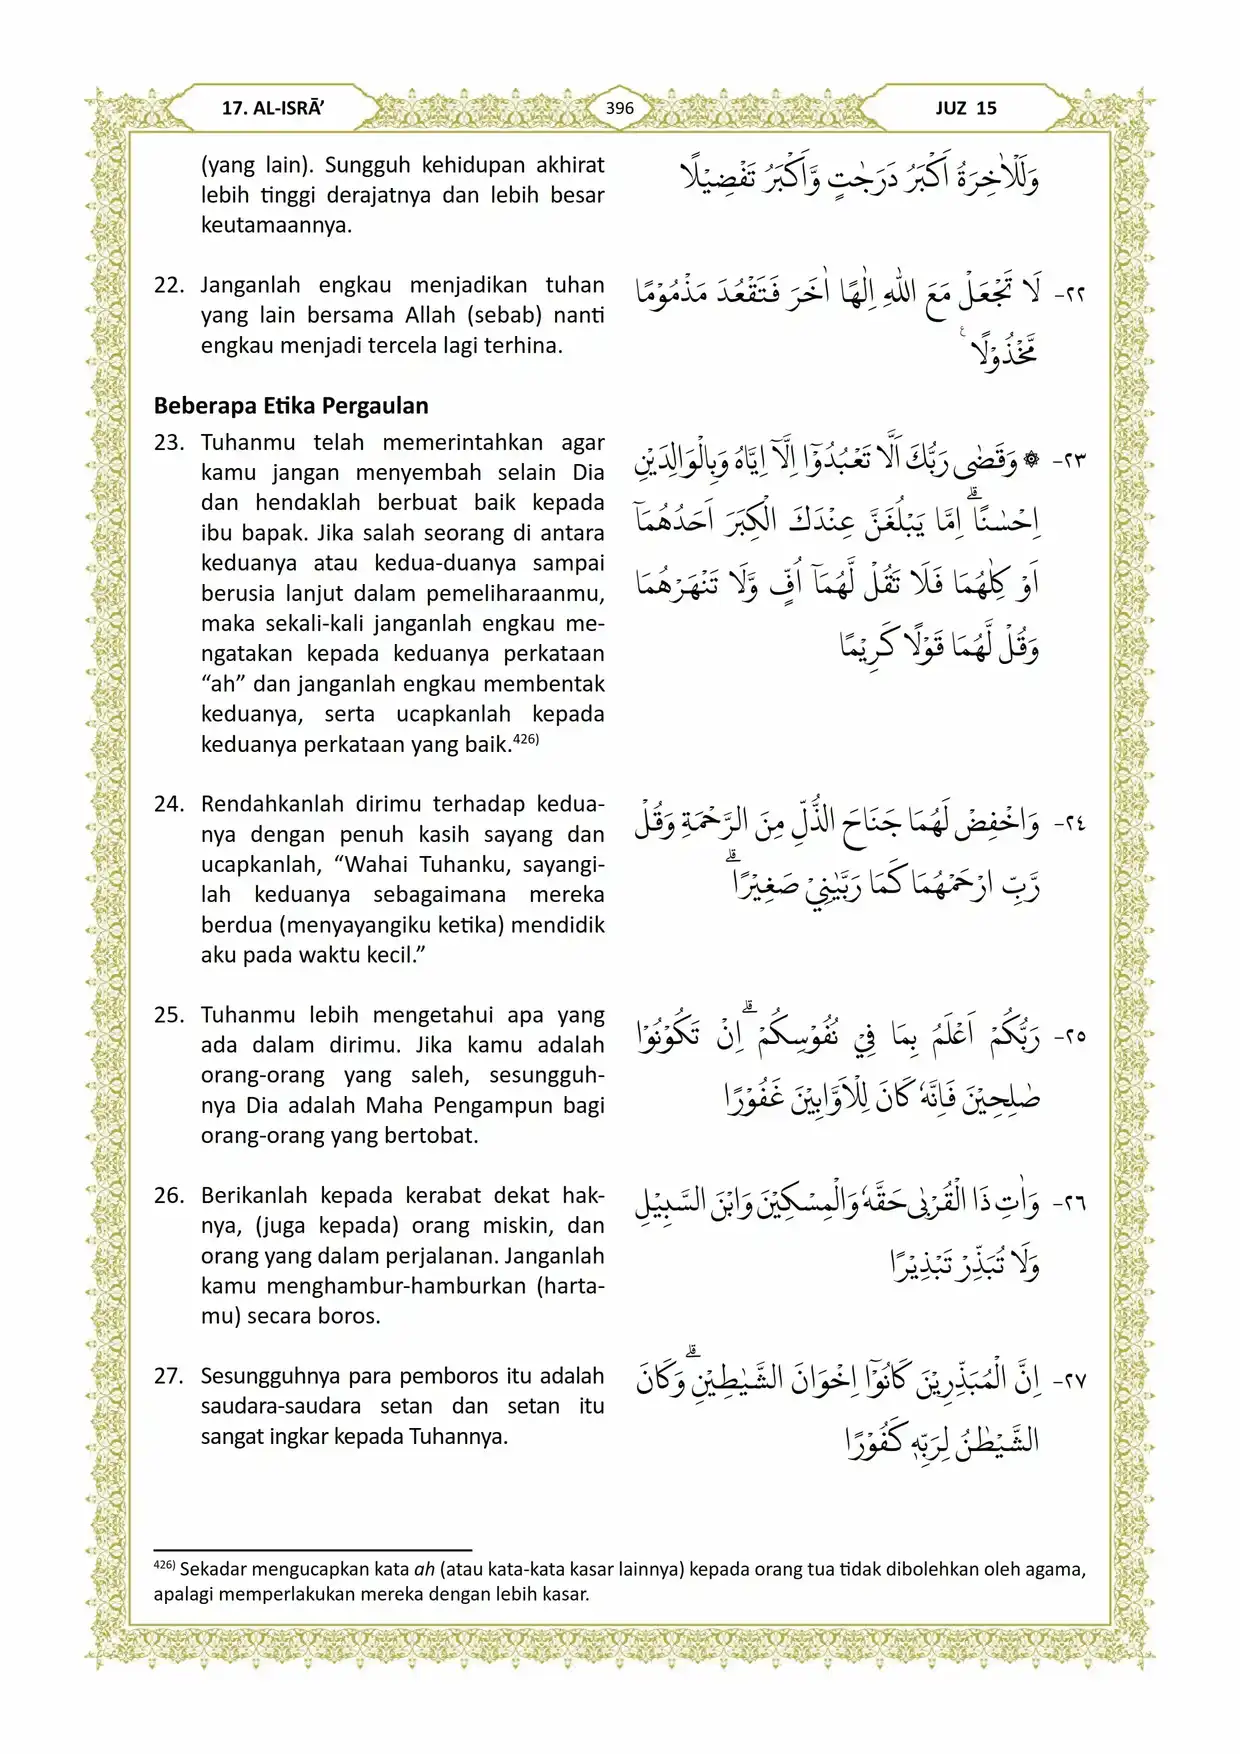 17. AL-ISRĀ’
396
JUZ 15
(yang lain). Sungguh kehidupan akhirat
lebih tinggi derajatnya dan lebih besar
keutamaannya.
وَلَلْاٰخِرَةُ اَكْبَرُ دَرَجٰتٍ وَّاَكْبَرُ تَفْضِيْلًا
22. Janganlah engkau menjadikan tuhan
yang lain bersama Allah (sebab) nanti
engkau menjadi tercela lagi terhina.
٢٢- لَا تَجْعَلْ مَعَ اللّٰهِ اِلٰهًا اٰخَرَ فَتَقْعُدَ مَذْمُوْمًا
مَّخْذُوْلًا ࣖ
Beberapa Etika Pergaulan
23. Tuhanmu telah memerintahkan agar
kamu jangan menyembah selain Dia
dan hendaklah berbuat baik kepada
ibu bapak. Jika salah seorang di antara
keduanya atau kedua-duanya sampai
berusia lanjut dalam pemeliharaanmu,
maka sekali-kali janganlah engkau me-
ngatakan kepada keduanya perkataan
“ah” dan janganlah engkau membentak
keduanya, serta ucapkanlah kepada
keduanya perkataan yang baik.426)
٢٣- ۞ وَقَضٰى رَبُّكَ اَلَّا تَعْبُدُوْٓا اِلَّآ اِيَّاهُ وَبِالْوَالِدَيْنِ
اِحْسٰنًاۗ اِمَّا يَبْلُغَنَّ عِنْدَكَ الْكِبَرَ اَحَدُهُمَآ
اَوْ كِلٰهُمَا فَلَا تَقُلْ لَّهُمَآ اُفٍّ وَّلَا تَنْهَرْهُمَا
وَقُلْ لَّهُمَا قَوْلًا كَرِيْمًا
24. Rendahkanlah dirimu terhadap kedua-
nya dengan penuh kasih sayang dan
ucapkanlah, “Wahai Tuhanku, sayangi-
lah keduanya sebagaimana mereka
berdua (menyayangiku ketika) mendidik
aku pada waktu kecil.”
٢٤- وَاخْفِضْ لَهُمَا جَنَاحَ الذُّلِّ مِنَ الرَّحْمَةِ وَقُلْ
رَّبِّ ارْحَمْهُمَا كَمَا رَبَّيٰنِيْ صَغِيْرًاۗ
25. Tuhanmu lebih mengetahui apa yang
ada dalam dirimu. Jika kamu adalah
orang-orang yang saleh, sesungguh-
nya Dia adalah Maha Pengampun bagi
orang-orang yang bertobat.
٢٥- رَبُّكُمْ اَعْلَمُ بِمَا فِيْ نُفُوْسِكُمْۗ اِنْ تَكُوْنُوْا
صٰلِحِيْنَ فَاِنَّهٗ كَانَ لِلْاَوَّابِيْنَ غَفُوْرًا
26. Berikanlah kepada kerabat dekat hak-
nya, (juga kepada) orang miskin, dan
orang yang dalam perjalanan. Janganlah
kamu menghambur-hamburkan (harta-
mu) secara boros.
٢٦- وَاٰتِ ذَا الْقُرْبٰى حَقَّهٗ وَالْمِسْكِيْنَ وَابْنَ السَّبِيْلِ
وَلَا تُبَذِّرْ تَبْذِيْرًا
27. Sesungguhnya para pemboros itu adalah
saudara-saudara setan dan setan itu
sangat ingkar kepada Tuhannya.
٢٧- اِنَّ الْمُبَذِّرِيْنَ كَانُوْٓا اِخْوَانَ الشَّيٰطِيْنِۗ وَكَانَ
الشَّيْطٰنُ لِرَبِّهٖ كَفُوْرًا
426) Sekadar mengucapkan kata ah (atau kata-kata kasar lainnya) kepada orang tua tidak dibolehkan oleh agama,
apalagi memperlakukan mereka dengan lebih kasar.